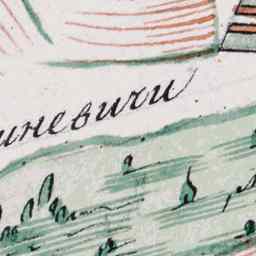 иневичи